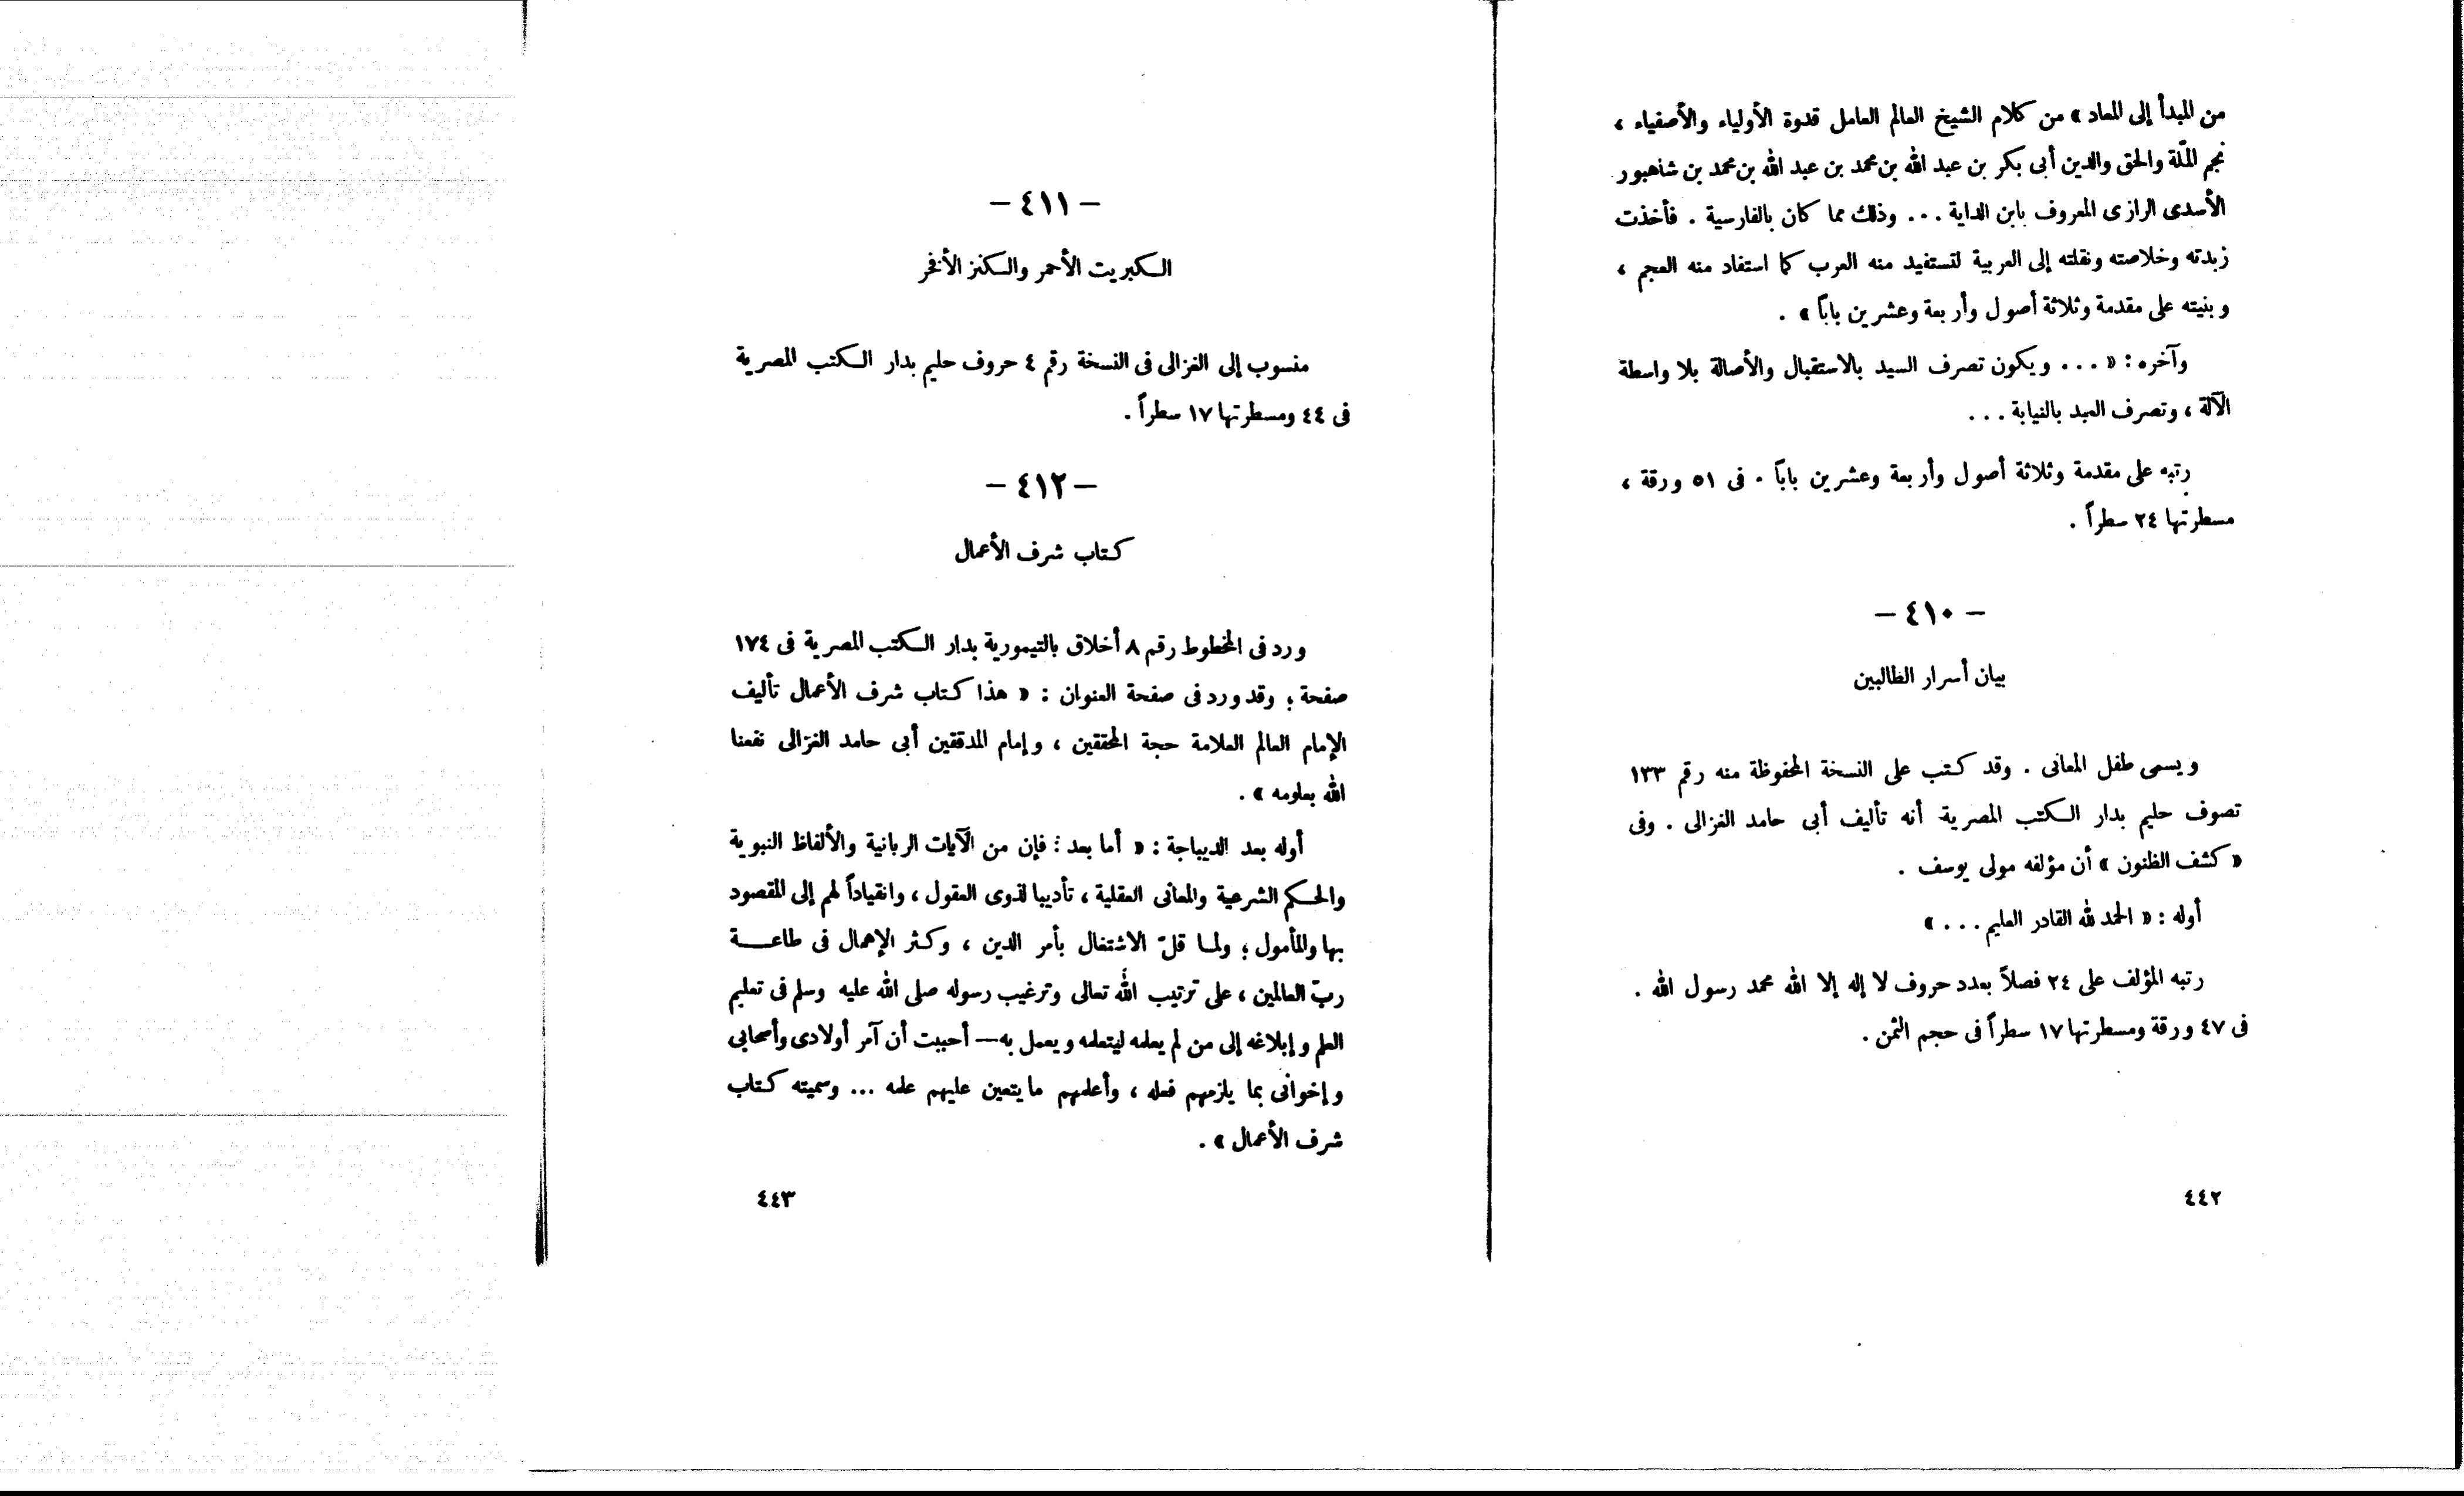 من المبدأ إلى المعاد » من كلام الشيخ العالم العامل قدوة الأولياء والأصفياء ،
نجم الملّة والحق والدين أبى بكر بن عبد الله بن محمد بن عبد الله بن محمد بن شاهبور
الأسدى الرازى المعروف بابن الداية ... وذلك مما كان بالفارسية . فأخذت
زبدته وخلاصته ونقلته إلى العربية لتستفيد منه العرب كما استفاد منه العجم ،
وبنيته على مقدمة وثلاثة أصول وأربعة وعشرين باباً » .
وآخره : « ... ويكون تصرف السيد بالاستقبال والأصالة بلا واسطة
الآلة ، وتصرف العبد بالنيابة ...
رتبه على مقدمة وثلاثة أصول وأربعة وعشرين باباً . فى ٥١ ورقة ،
مسطرتها ٢٤ سطراً .
— ٤١٠ —
بيان أسرار الطالبين
ويسمى طفل المعانى . وقد كتب على النسخة المحفوظة منه رقم ١٣٣
تصوف حليم بدار الكتب المصرية أنه تأليف أبى حامد الغزالى . وفى
« كشف الظنون » أن مؤلفه مولى يوسف .
أوله : « الحمد لله القادر العليم ... »
رتبه المؤلف على ٢٤ فصلاً بعدد حروف لا إله إلا الله محمد رسول الله .
فى ٤٧ ورقة ومسطرتها ١٧ سطراً فى حجم الثمن .
٤٤٢
— ٤١١ —
الكبريت الأحمر والكنز الأفخر
منسوب إلى الغزالى فى النسخة رقم ٤ حروف حليم بدار الكتب المصرية
فى ٤٤ ومسطرتها ١٧ سطراً .
— ٤١٢ —
كتاب شرف الأعمال
ورد فى المخطوط رقم ٨ أخلاق بالتيمورية بدار الكتب المصرية فى ١٧٤
صفحة ؛ وقد ورد فى صفحة العنوان : « هذا كتاب شرف الأعمال تأليف
الإمام العالم العلامة حجة المحققين ، وإمام المدققين أبى حامد الغزالى نفعنا
الله بعلومه » .
أوله بعد الديباجة : « أما بعد : فإن من الآيات الربانية والألفاظ النبوية
والحكم الشرعية والمعانى العقلية ، تأديبا لذوى العقول ، وانقياداً لهم إلى المقصود
بها والمأمول ؛ ولما قلّ الاشتغال بأمر الدين ، وكثر الإهمال فى طاعة
ربّ العالمين ، على ترتيب الله تعالى وترغيب رسوله صلى الله عليه وسلم فى تعليم
العلم وإبلاغه إلى من لم يعلمه ليتعلمه ويعمل به — أحببت أن آمر أولادى وأصحابى
وإخوانى بما يلزمهم فعله ، وأعلمهم ما يتعين عليهم علمه ... وسميته كتاب
شرف الأعمال » .
٤٤٣